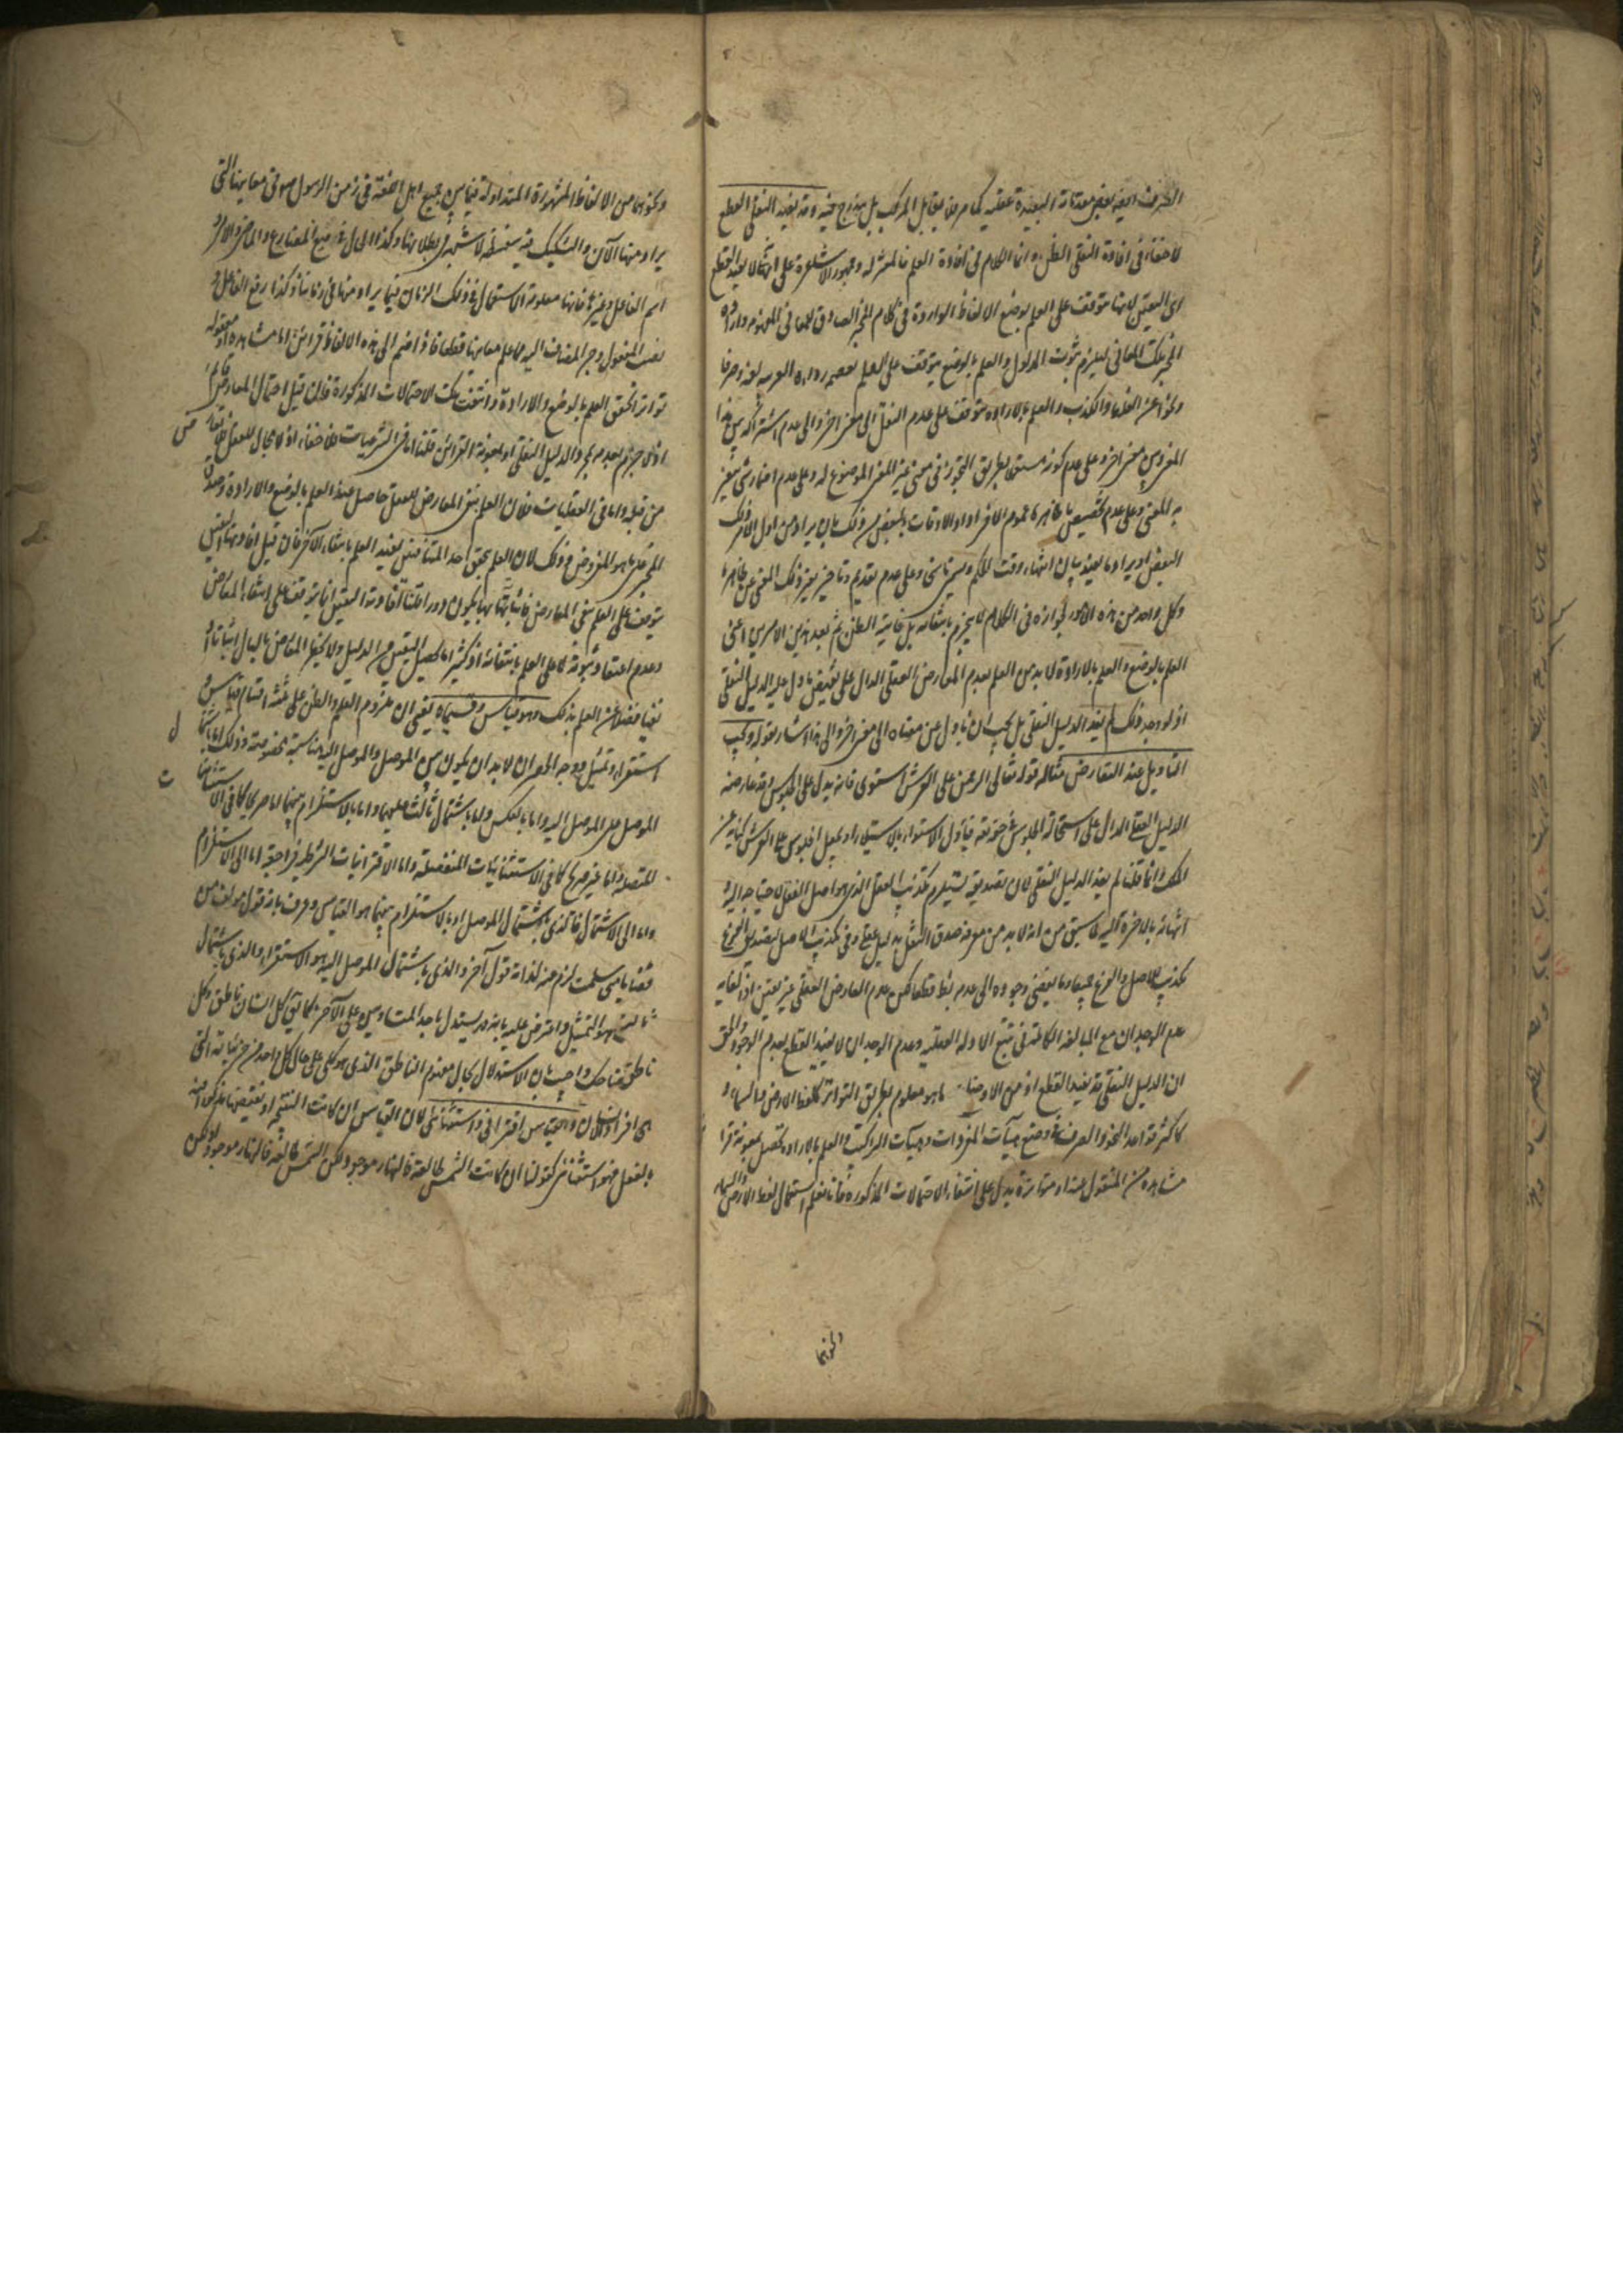 الصرف اذ فيه بعض مقدماته البعيدة عقلية كما مر فلا يقابل المركب بل يندرج فيه وقد يفيد النقلي القطع
لا خفاء في افادة النقلي الظن وانما الكلام في افادة العلم فالمعتزلة وجمهور الاشاعرة على انها لا يفيد القطع
اى اليقين لانها متوقفة على العلم بوضع الالفاظ الواردة في كلام المخبر الصادق للمعاني المفهومة وارادة
المخبر تلك المعاني ليلزم ثبوت المدلول والعلم بالوضع يتوقف على العلم بعصمة رواة العربية لغة وصرفا
ونحوا عن الغلط والكذب والعلم بالارادة متوقف على عدم النقل الى معنى اخر والى عدم اشتراكه بين هذا
المعنى وبين معنى اخر وعلى عدم كونه مستعملا بطريق التجوز في معنى غير المعنى الموضوع له وعلى عدم اضمار شئ يتغير
به المعنى وعلى عدم تخصيص ما ظاهره عموم الافراد او الاوقات بالبعض من ذلك بان يراد من اول الامر ذلك
البعض او يراد ما يفيد بيان انتهاء وقت الحكم ويسمى ناسخا وعلى عدم تقديم وتاخير يغير ذلك المعنى عن ظاهره
وكل واحد من هذه الامور لجوازه في الكلام لا يجزم بانتفائه بل غايته الظن ثم بعد هذين الامرين اعنى
العلم بالوضع والعلم بالارادة لا بد من العلم بعدم المعارض العقلي الدال على نقيض ما دل عليه الدليل النقلي
اذ لو وجد ذلك لم يفد الدليل النقلي بل يجب ان يأول عن معناه الى معنى اخر والى هذا اشار بقوله ويجب
التاويل عند التعارض مثاله قوله تعالى الرحمن على العرش استوى فانه يدل على الجلوس وقد عارضه
الدليل العقلي الدال على استحالة الجلوس في حقه تعالى فيأول الاستواء بالاستيلاء او بجعل الجلوس على العرش كناية عن
الملك وانما قلنا لم يفد الدليل النقلي لان تصديقه يستلزم تكذيب العقل الذي هو اصل النقل لاحتياجه اليه و
انتهائه بالاخرة اليه لما سبق من انه لا بد من معرفة صدق النقل بدليل عقلي وفي تكذيب الاصل لتصديق الفرع
تكذيب للاصل والفرع جميعا وما يفضى وجوده الى عدمه باطل قطعا لكن عدم المعارض العقلي غير يقين اذ الغاية
عدم الوجدان مع المبالغة الكاملة في تتبع الادلة العقلية وعدم الوجدان لا يفيد القطع بعدم الوجود والحق
ان الدليل النقلي قد يفيد القطع اذ من الاوضاع ما هو معلوم بطريق التواتر كلفظ الارض والسماء و
كاكثر قواعد النحو والصرف في وضع هيآت المفردات وهيآت المراكيب والعلم بالارادة يحصل بمعونة قرائن
مشاهدة من المنقول عنه او متواترة تدل على انتفاء الاحتمالات المذكورة فانا نعلم استعمال لفظ الارض والسماء
ونحوهما
ونحوهما من الالفاظ المشهورة المتداولة فيما بين جميع اهل اللغة في زمن الرسول صلعم في معانيها التي
يراد منها الآن والتشكيك فيه سفسطة لا شبهة في بطلانها وكذا الحال في صيغ المضارع والماضى والامر و
اسم الفاعل وغيرها فانها معلومة الاستعمال في ذلك الزمان فيما يراد منها في زماننا وكذا رفع الفاعل و
نصب المفعول وجر المضاف اليه مما علم معانيها قطعا فاذا انضم الى هذه الالفاظ قرائن اما مشاهدة او منقولة
تواترا تحقق العلم بالوضع والارادة وانتفت تلك الاحتمالات المذكورة فان قيل احتمال المعارض قائم
اذ لا جزم بعدمه بمجرد الدليل النقلي او بمعونة القرائن قلنا اما في الشرعيات فلا خفاء اذ لا مجال للعقل فلا معارض
من قبله واما في العقليات فلان العلم بنفي المعارض للعقل حاصل عند العلم بالوضع والارادة وصدق
المخبر على ما هو المفروض وذلك لان العلم بتحقق احد المتنافيين يفيد العلم بانتفاء الآخر فان قيل افادتها اليقين
يتوقف على العلم بنفي المعارض فاثباته بها يكون دورا قلنا افادته اليقين انما يتوقف على انتفاء المعارض
وعدم اعتقاد ثبوته لا على العلم بانتفائه اذ كثيرا ما يحصل اليقين من الدليل ولا يخطر المعارض بالبال اثباتا او
نفيا فضلا عن العلم بذلك وهو قياس وقسيماه يعنى ان ملزوم العلم والظن على ثلثة اقسام قياس و
استقراء وتمثيل ووجه الحصر ان لا بد ان يكون بين الموصل والموصل اليه مناسبة مخصوصة وذلك اما باشتمال
الموصل على الموصل اليه واما بالعكس واما باشتمال ثالث عليهما واما بالاستلزام بينهما اما صريحا كما في الاستثنائيات
المتصلة واما غير صريح كما في الاستثنائيات المنفصلة واما الاقترانيات الشرطية فراجعة اما الى الاستلزام
واما الى الاشتمال فالذي باشتمال الموصل او بالاستلزام بينهما هو القياس وعرف بانه قول مؤلف من
قضايا متى سلمت لزم عنه لذاته قول آخر والذي باشتمال الموصل اليه هو الاستقراء والذي باشتمال
ثالث هو التمثيل واعترض عليه بانه قد يستدل باحد المتساويين على الآخر كما يقال كل انسان ناطق وكل
ناطق ضاحك واجيب بان الاستدلال بحال مفهوم الناطق الذي هو كلى على حال كل واحد من جزئياته التي
هى افراد الانسان والقياس اقترانى واستثنائى لان القياس ان كانت النتيجة او نقيضها مذكورا فيه
بالفعل فهو استثنائى كقولنا ان كانت الشمس طالعة فالنهار موجود ولكن الشمس طالعة فالنهار موجود ولكن